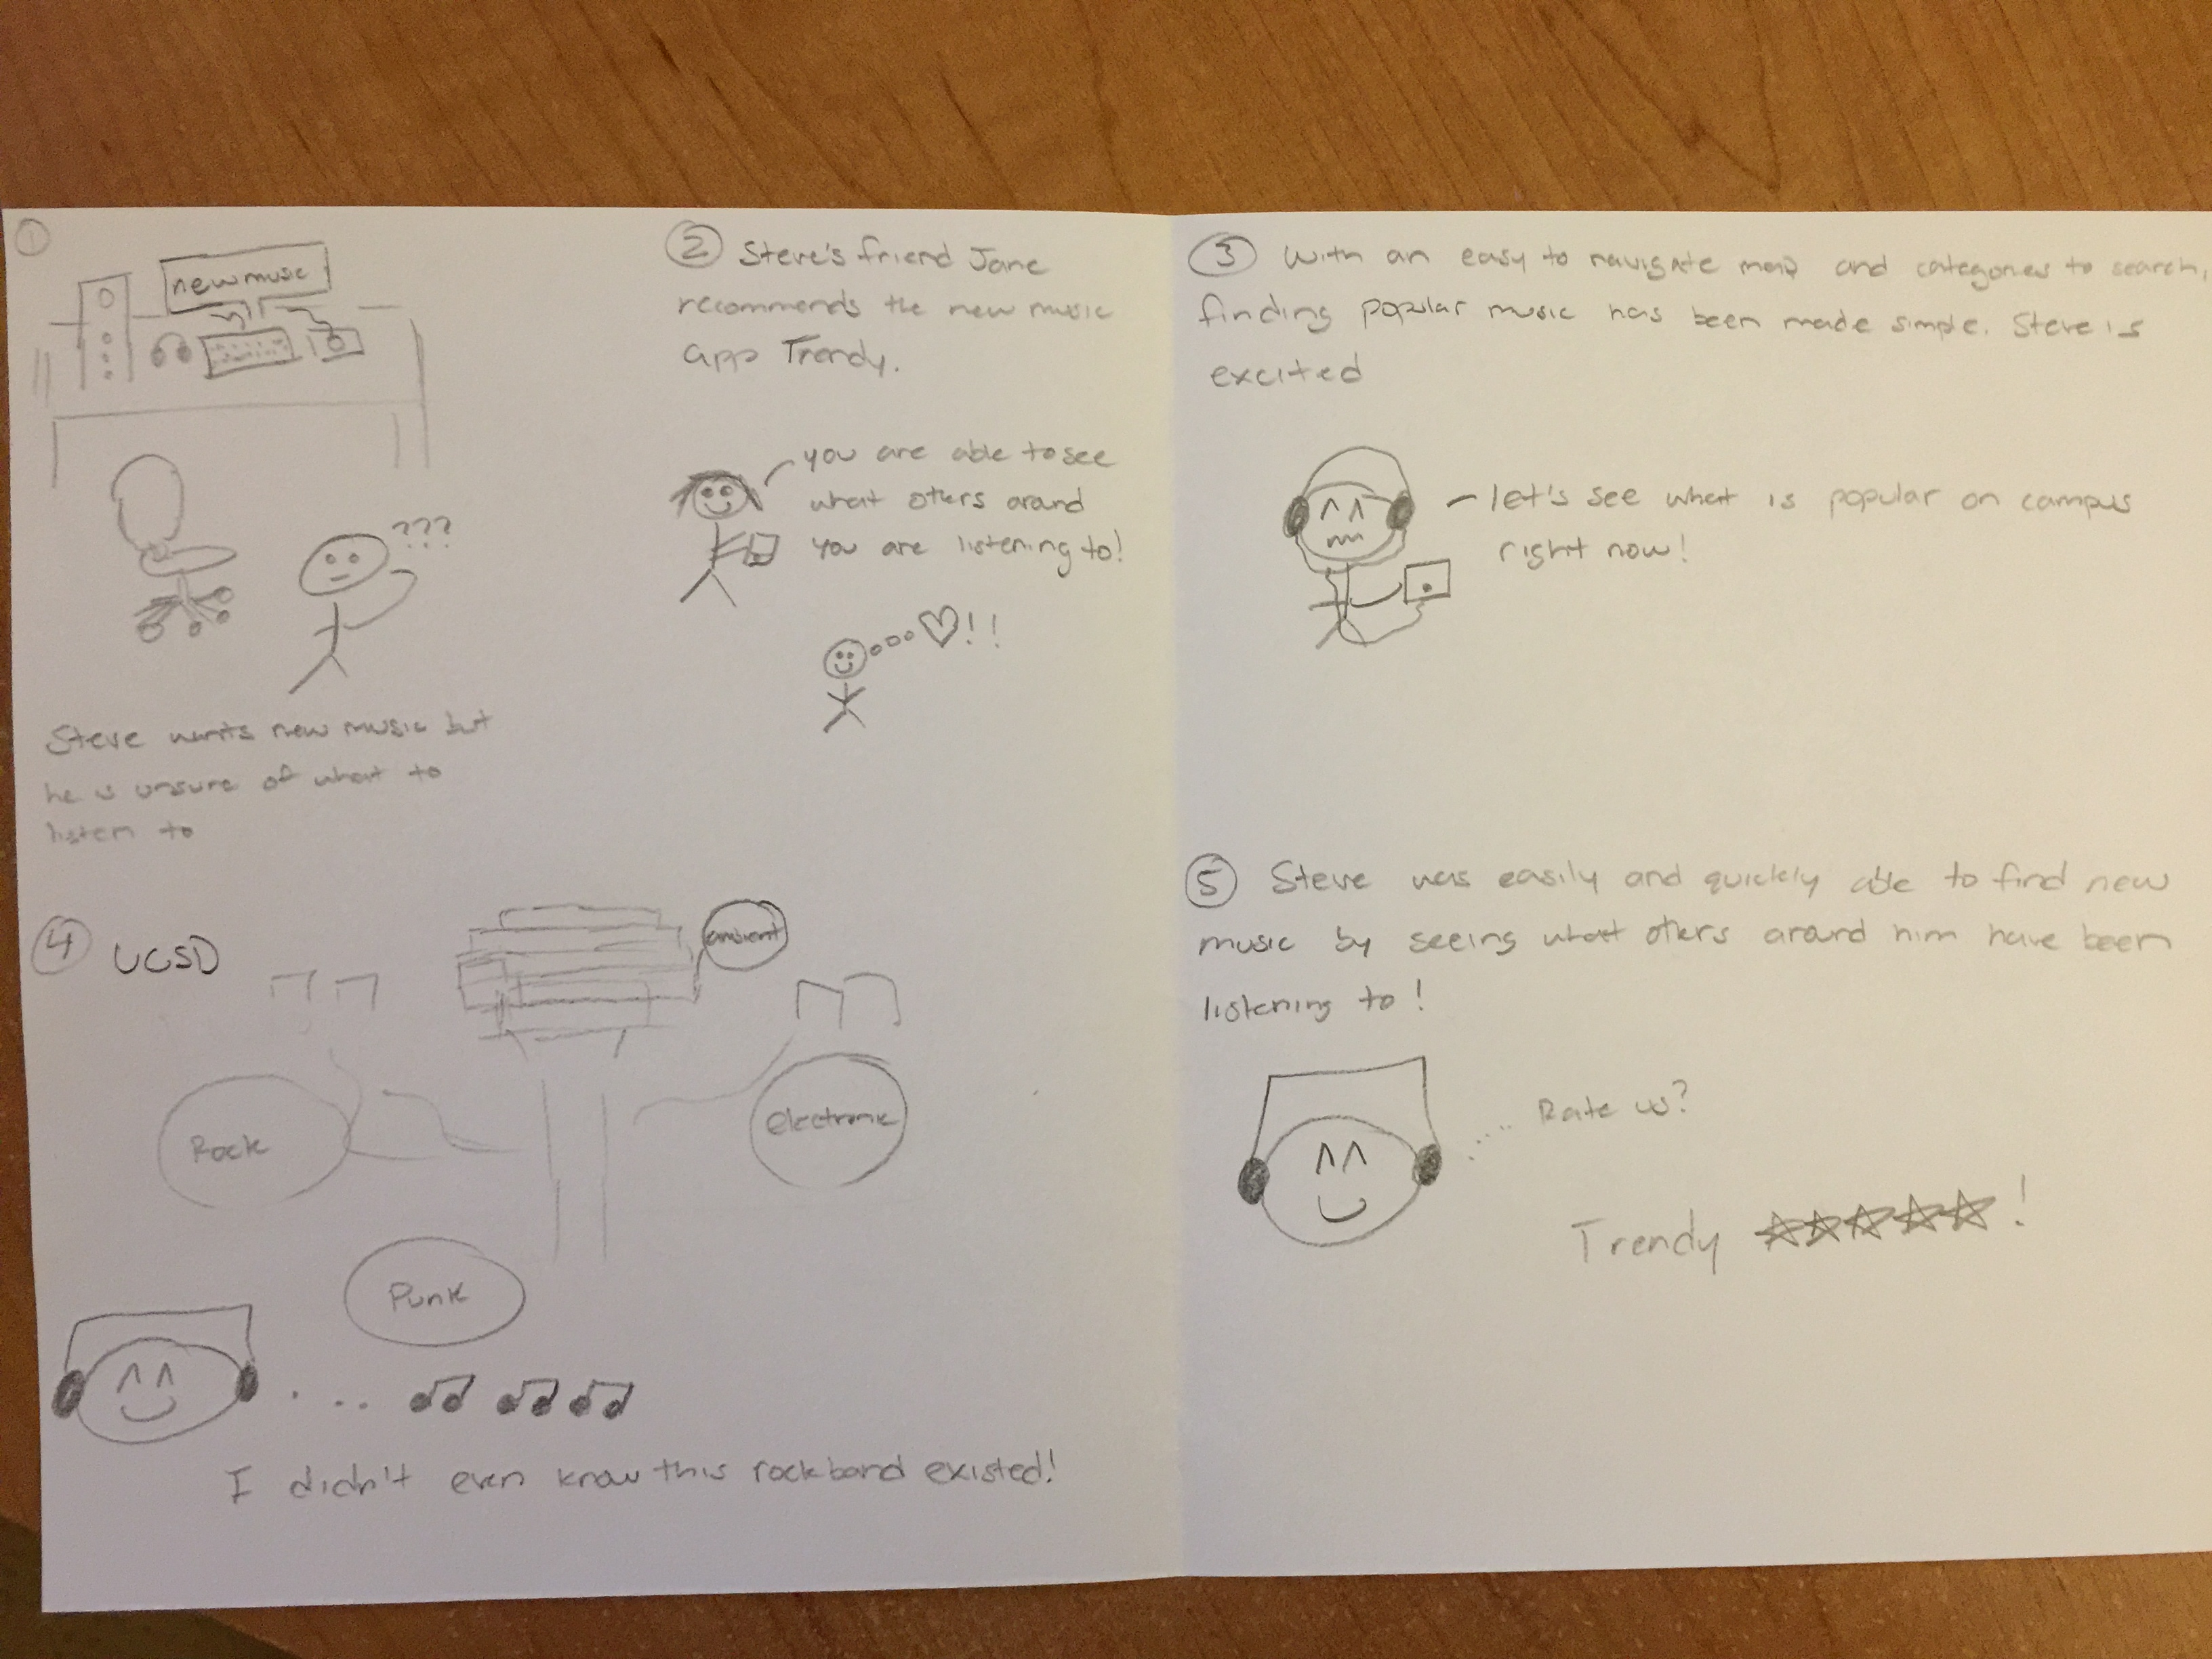 1
new music
???
Steve wants new music but
he is unsure of what to
listen to
2 Steve's friend Jane
recommends the new music
app Trendy.
you are able to see
what others around
you are listening to!
!!
3 With an easy to navigate map and categories to search,
finding popular music has been made simple. Steve is
excited
let's see what is popular on campus
right now!
4 UCSD
ambient
Rock
electronic
Punk
I didn't even know this rock band existed!
5 Steve was easily and quickly able to find new
music by seeing what others around him have been
listening to!
Rate us?
Trendy ☆☆☆☆☆!